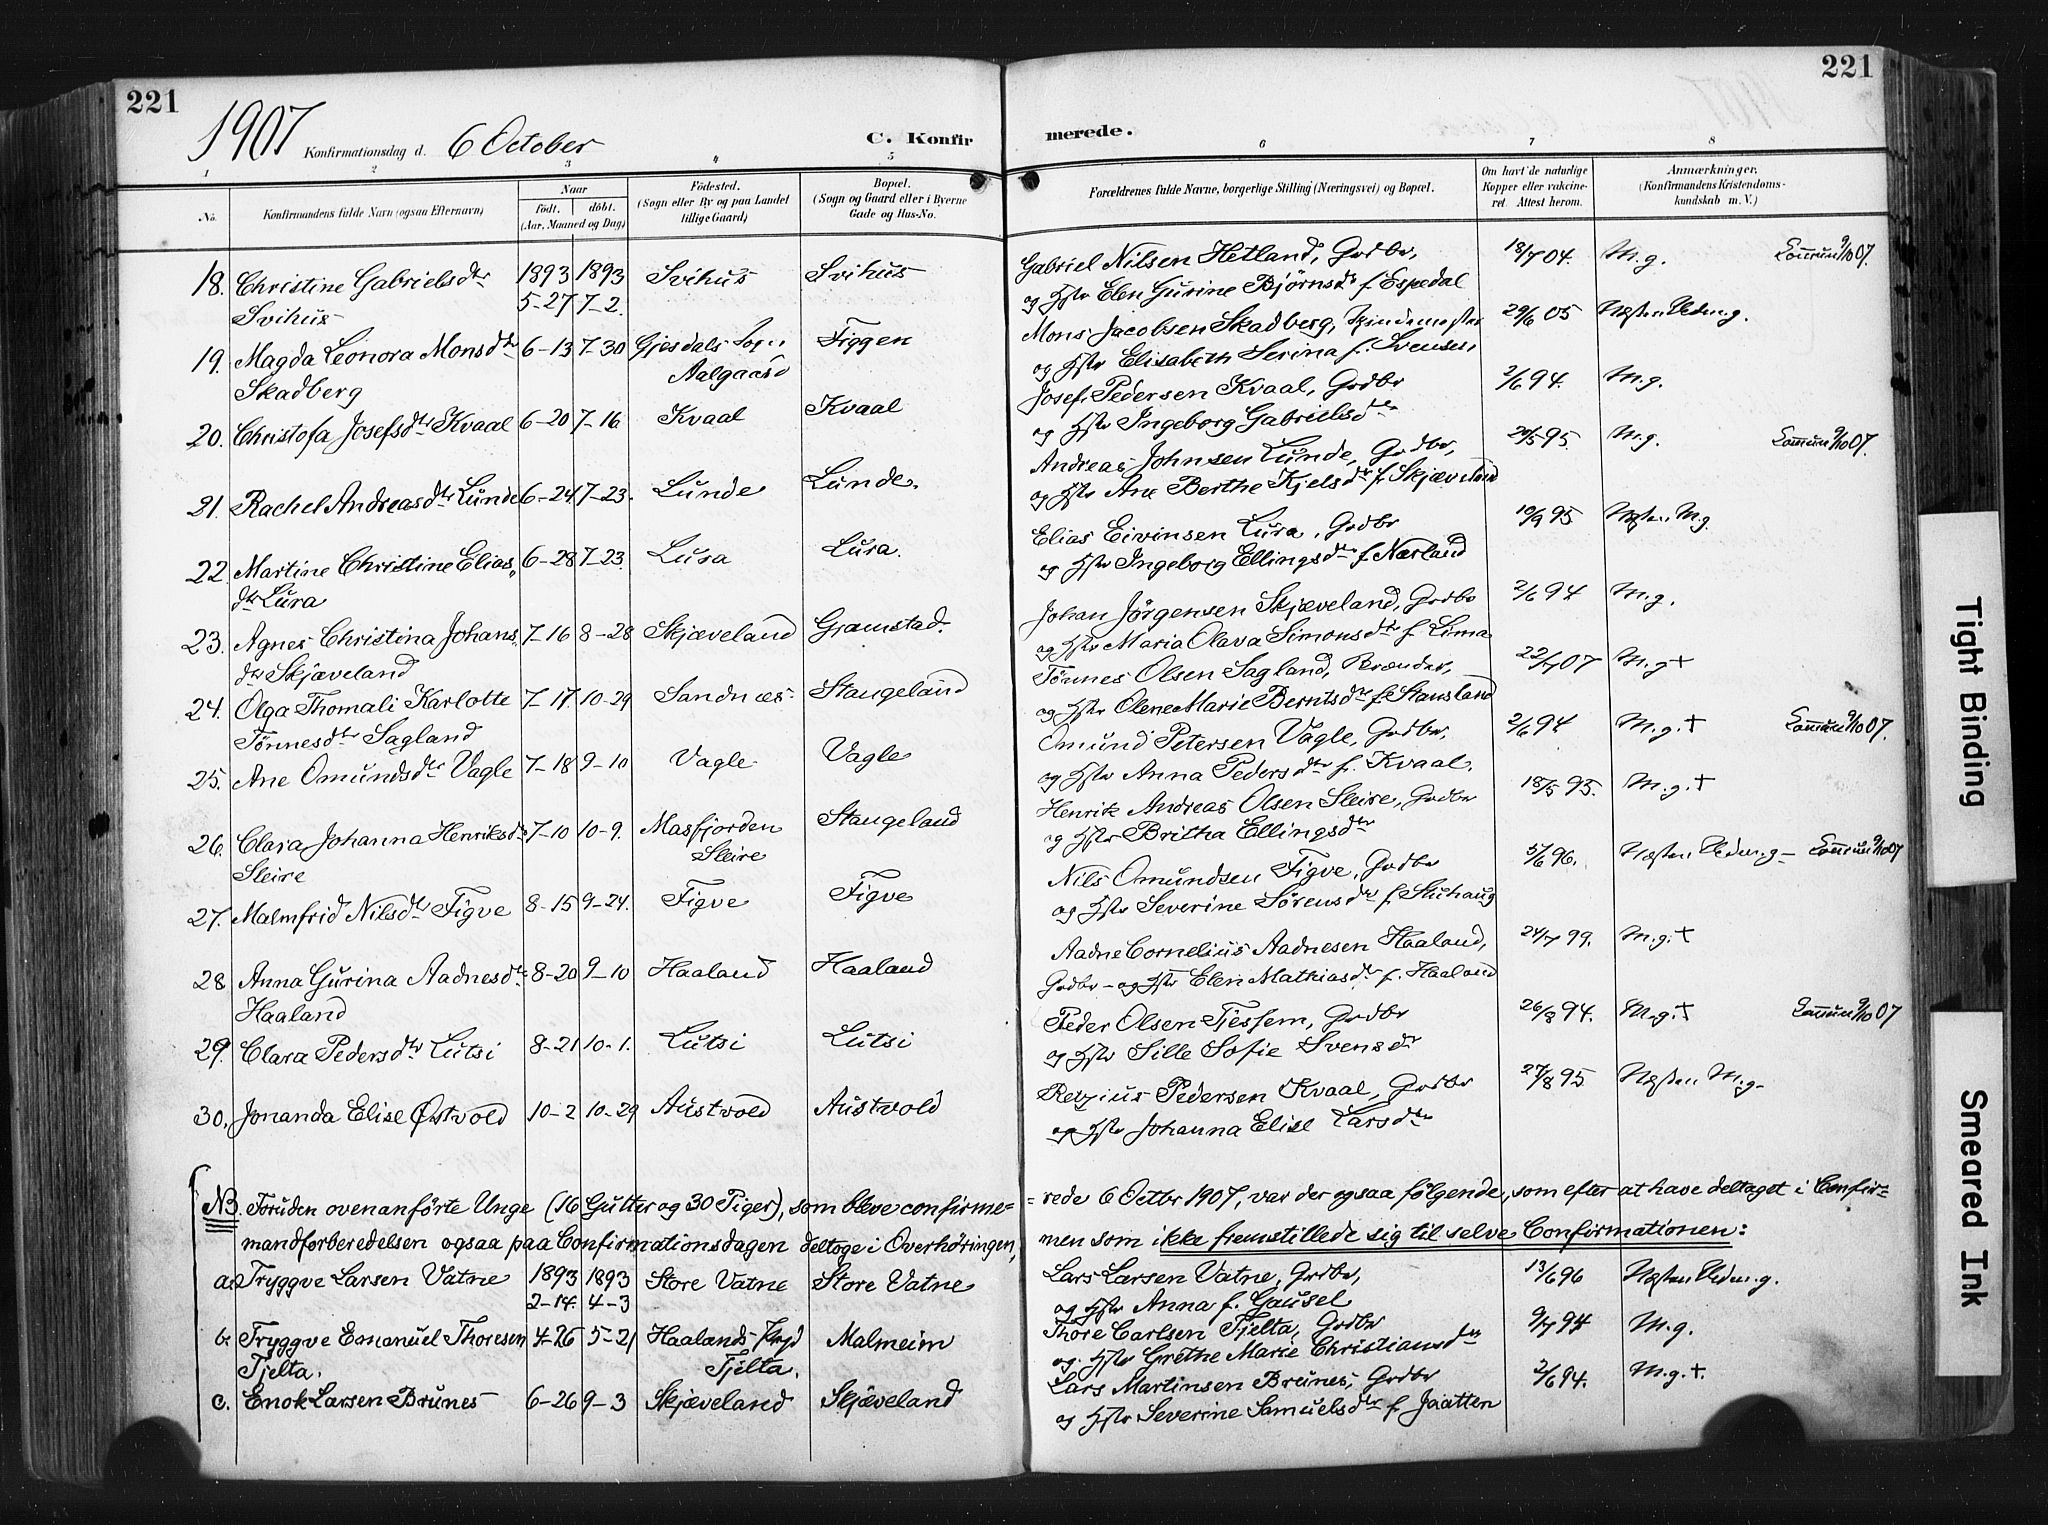 221
221
1907 Konfirmationsdag d. 6 October C. Konfirmerede.
1 2 3 4 5 6 7 8
No.
Konfirmandens fulde Navn (ogsaa Efternavn)
Naar
Födt. döbt.
(Aar, Maaned og Dag)
Födested.
(Sogn eller By og paa Landet
tillige Gaard)
Bopæl.
(Sogn og Gaard eller i Byerne
Gade og Hus-No.
Forældrenes fulde Navne, borgerlige Stilling (Næringsvei) og Bopæl.
Om havt de naturlige
Kopper eller vakcine-
ret. Attest herom.
Anmærkninger.
(Konfirmandens Kristendoms-
kundskab m. V.)
18. Christine Gabrielsdtr 1893 1893 Svihus Svihus Gabriel Nilsen Hetland, Grdbr, 18/7 04. M.g. 9/10 07.
Svihus 5-27 7-2. og Hstr Elen Gurine Bjørnsdr f. Espedal
19. Magda Leonora Monsdtr 6-13 7-30 Gjesdals Sogn Figgen Mons Jacobsen Skadberg, 29/6 05
Skadberg Aalgaard og Hstr Elisabeth Serina f. Svensen
20. Christofa Josefsdtr Kvaal 6-20 7-16 Kvaal Kvaal Josef Pedersen Kvaal, Grdbr 2/6 94. M.g.
og Hstr Ingeborg Gabrielsdtr
21. Rachel Andreasdtr Lunde 6-24 7-23. Lunde Lunde. Andreas Johnsen Lunde, Grdbr, 20/5 95. M.g. 9/10 07.
og Hstr Ane Berthe Kjelsdtr f. Skjæveland
22. Martine Christine Elias- 6-28 7-23. Lura Lura. Elias Eivinsen Lura, Grdbr 10/9 95 Næsten M.g.
dtr Lura og Hstr Ingeborg Ellingsdtr f. Nærland
23. Agnes Christina Johans- 7-16 8-28 Skjæveland Gramstad. Johan Jörgensen Skjæveland, Grdbr 2/6 94 M.g.
dtr Skjæveland og Hstr Maria Olava Simonsdtr f. Lima
24. Olga Thomali Karlotte 7-17 10-29 Sandnes Stangeland Tönnes Olsen Sagland, 22/7 07 M.g+
Tönnesdtr Sagland og Hstr Olene Marie Berntsdtr f. Stansland
25. Ane Omundsdtr Vagle 7-18 9-10 Vagle Vagle Omund Petersen Vagle, Grdbr, 2/6 94 M.g.+ 9/10 07.
og Hstr Anna Pedersdtr f. Kvaal.
26. Clara Johanna Henriksdtr 7-10 10-9. Masfjorden Stangeland Henrik Andreas Olsen Sleire, Grdbr 18/5 95. M.g.+
Sleire Sleire og Hstr Britha Ellingsdtr
27. Malmfrid Nilsdtr Figve 8-15 9-24. Figve Figve Nils Omundsen Figve, Grdbr 5/6 96. 9/10 07
og Hstr Severine Sörensdtr f. Stuhaug
28 Anna Gurina Aadnesdtr 8-20 9-10 Haaland Haaland Aadne Cornelius Aadnesen Haaland, 24/7 99. M.g.+
Haaland Grdbr - og Hstr Elen Mathiasdtr f. Haaland
29. Clara Pedersdtr Lutsi 8-21 10-1. Lutsi Lutsi Peder Olsen Tjessem, Grdbr 26/8 94. M.g.+ 9/10 07
og Hstr Sille Sofie Svensdtr
30. Jonanda Elise Østvold 10-2 10-29 Austvold Austvold Pedersen Kvaal, Grdbr 27/8 95 Næsten M.g.
og Hstr Johanna Elise Larsdtr
NB. Foruden ovenanförte Unge (16 Gutter og 30 Piger), som bleve confirme= =rede 6 Octbr 1907, var der ogsaa følgende, som efter at have deltaget i Confir=
mandforberedelsen ogsaa paa Confirmationsdagen deltoge i Overhøringen, men som ikke fremstillede sig til selve Confirmationen:
a. Tryggve Larsen Vatne 1893 1893 Store Vatne Store Vatne Lars Larsen Vatne, Grdbr, 13/6 96
2-14. 4-3 og Hstr Anna f. Gausel
b. Tryggve Emanuel Thoresen 4-26 5-21 Haalands Malmeim Thore Carlsen Tjelta, Grdbr 9/7 94 M.g.
Tjelta. Tjelta. og Hstr Grethe Marie Christiansdtr
c. Enok Larsen Brunes 6-26 9-3 Skjæveland Skjæveland Lars Martinsen Brunes, Grdbr 2/6 94. M.g.+.
og Hstr Severine Samuelsdtr f. Jaatten
Tight Binding
Smeared Ink